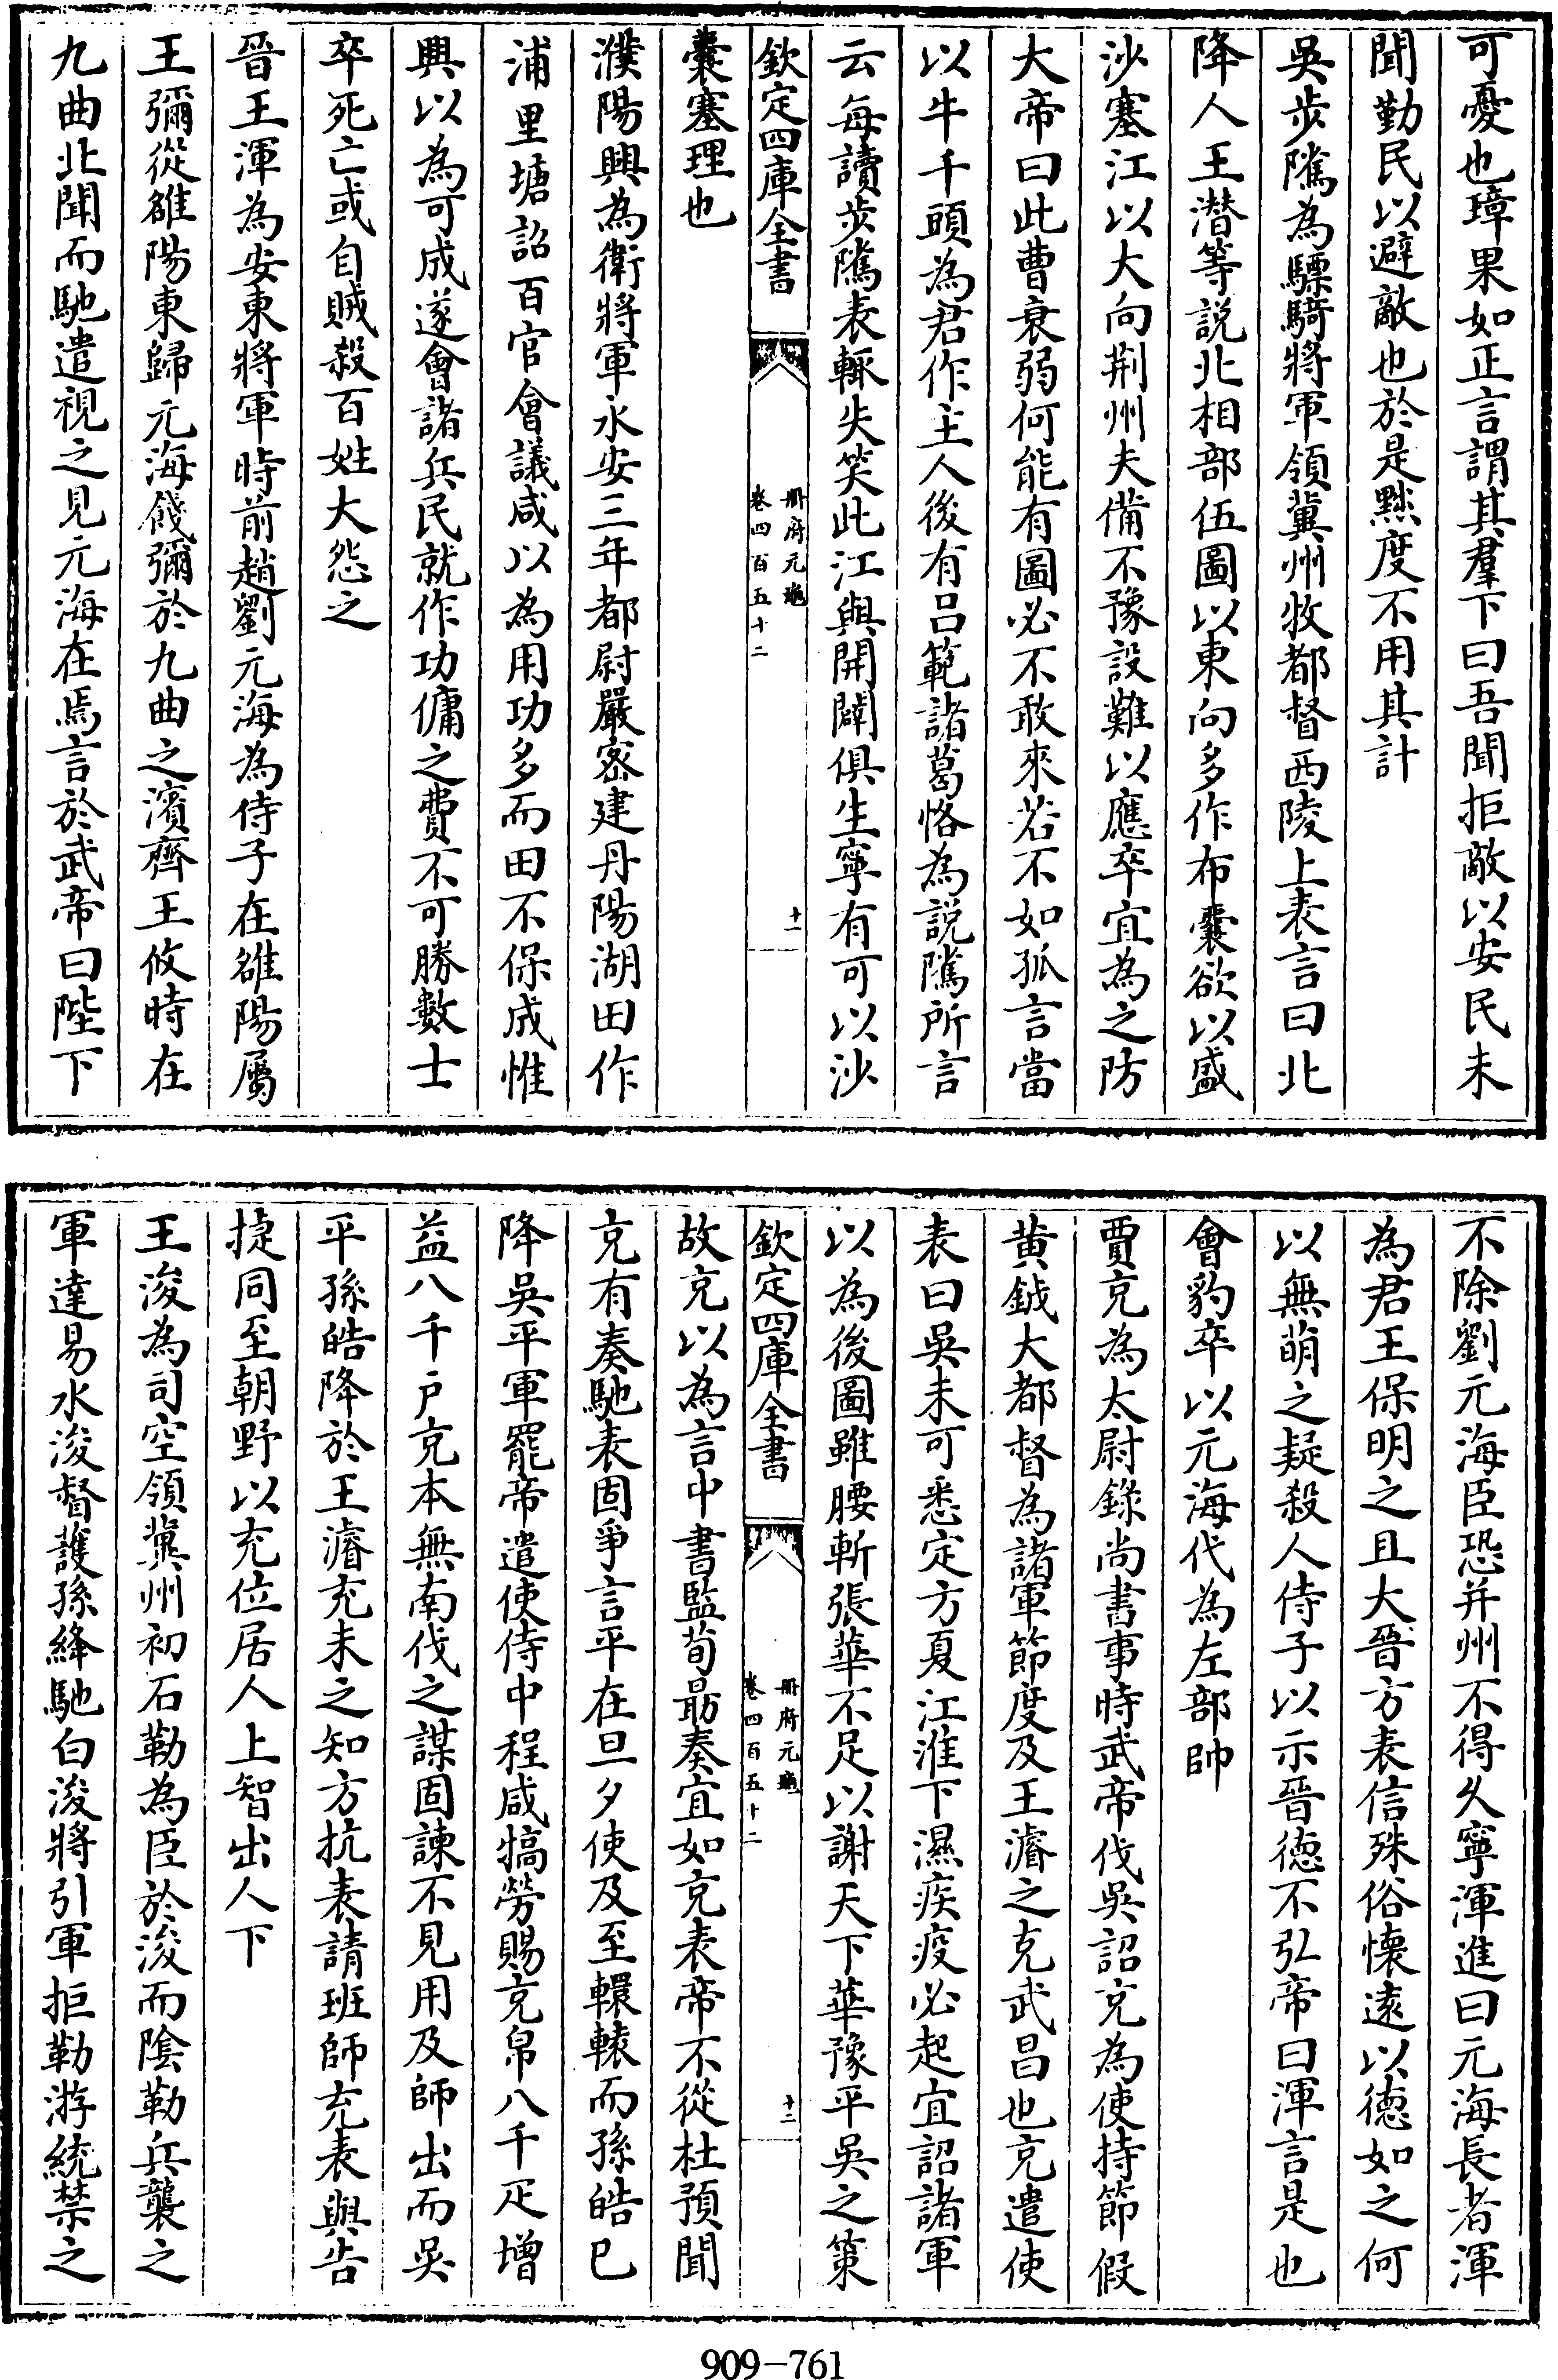 可憂也璋果如正言謂其羣下曰吾聞拒敵以安民未
聞勤民以避敵也於是黜度不用其計
吳步隲為驃騎將軍領冀州牧都督西陵上表言曰北
降人王潛等説北相部伍圖以東向多作布囊欲以盛
沙塞江以大向荆州夫備不豫設難以應卒宜為之防
大帝曰此曹衰弱何能有圖必不敢來若不如孤言當
以牛千頭為君作主人後有吕範諸葛恪為説隲所言
云每讀步隲表輒失笑此江與開闢俱生寧有可以沙
欽定四庫全書
册府元龜
卷四百五十二
十一
囊塞理也
濮陽興為衛將軍永安三年都尉嚴密建丹陽湖田作
浦里塘詔百官會議咸以為用功多而田不保成惟
興以為可成遂會諸兵民就作功傭之費不可勝數士
卒死亡或自賊殺百姓大怨之
晉王渾為安東將軍時前趙劉元海為侍子在雒陽屬
王彌從雒陽東歸元海餞彌於九曲之濱齊王攸時在
九曲北聞而馳遣視之見元海在焉言於武帝曰陛下
不除劉元海臣恐并州不得久寧渾進曰元海長者渾
為君王保明之且大晉方表信殊俗懷遠以德如之何
以無萌之疑殺人侍子以示晉德不弘帝曰渾言是也
會豹卒以元海代為左部帥
賈充為太尉錄尚書事時武帝伐吳詔充為使持節假
黄鉞大都督為諸軍節度及王濬之克武昌也充遣使
表曰吳未可悉定方夏江淮下濕疾疫必起宜詔諸軍
以為後圖雖腰斬張華不足以謝天下華豫平吳之策
欽定四庫全書
册府元龜
卷四百五十二
十二
故充以為言中書監荀勗奏宜如充表帝不從杜預聞
充有奏馳表固爭言平在旦夕使及至轘轅而孫皓已
降吳平軍罷帝遣使侍中程咸犒勞賜充帛八千疋增
益八千户充本無南伐之謀固諫不見用及師出而吳
平孫皓降於王濬充未之知方抗表請班師充表與告
捷同至朝野以充位居人上智出人下
王浚為司空領冀州初石勒為臣於浚而陰勒兵襲之
軍達易水浚督護孫緯馳白浚將引軍拒勒游統禁之
909-761